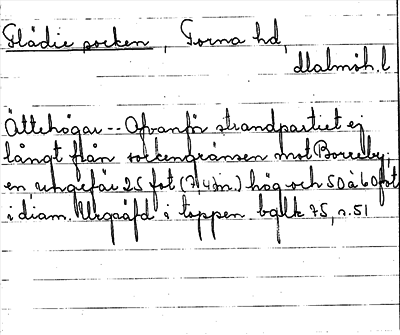 Flädie socken, Torna hd,
Malmöh. l.
Ättehögar -- Ofvanför strandpartiet ej
långt från sockengränsen mot Borreby,
en ungefär 25 fot (7,4 m.) hög och 50 à 60 fot
i diam. Urgräfd i toppen. bglk 75, s. 51